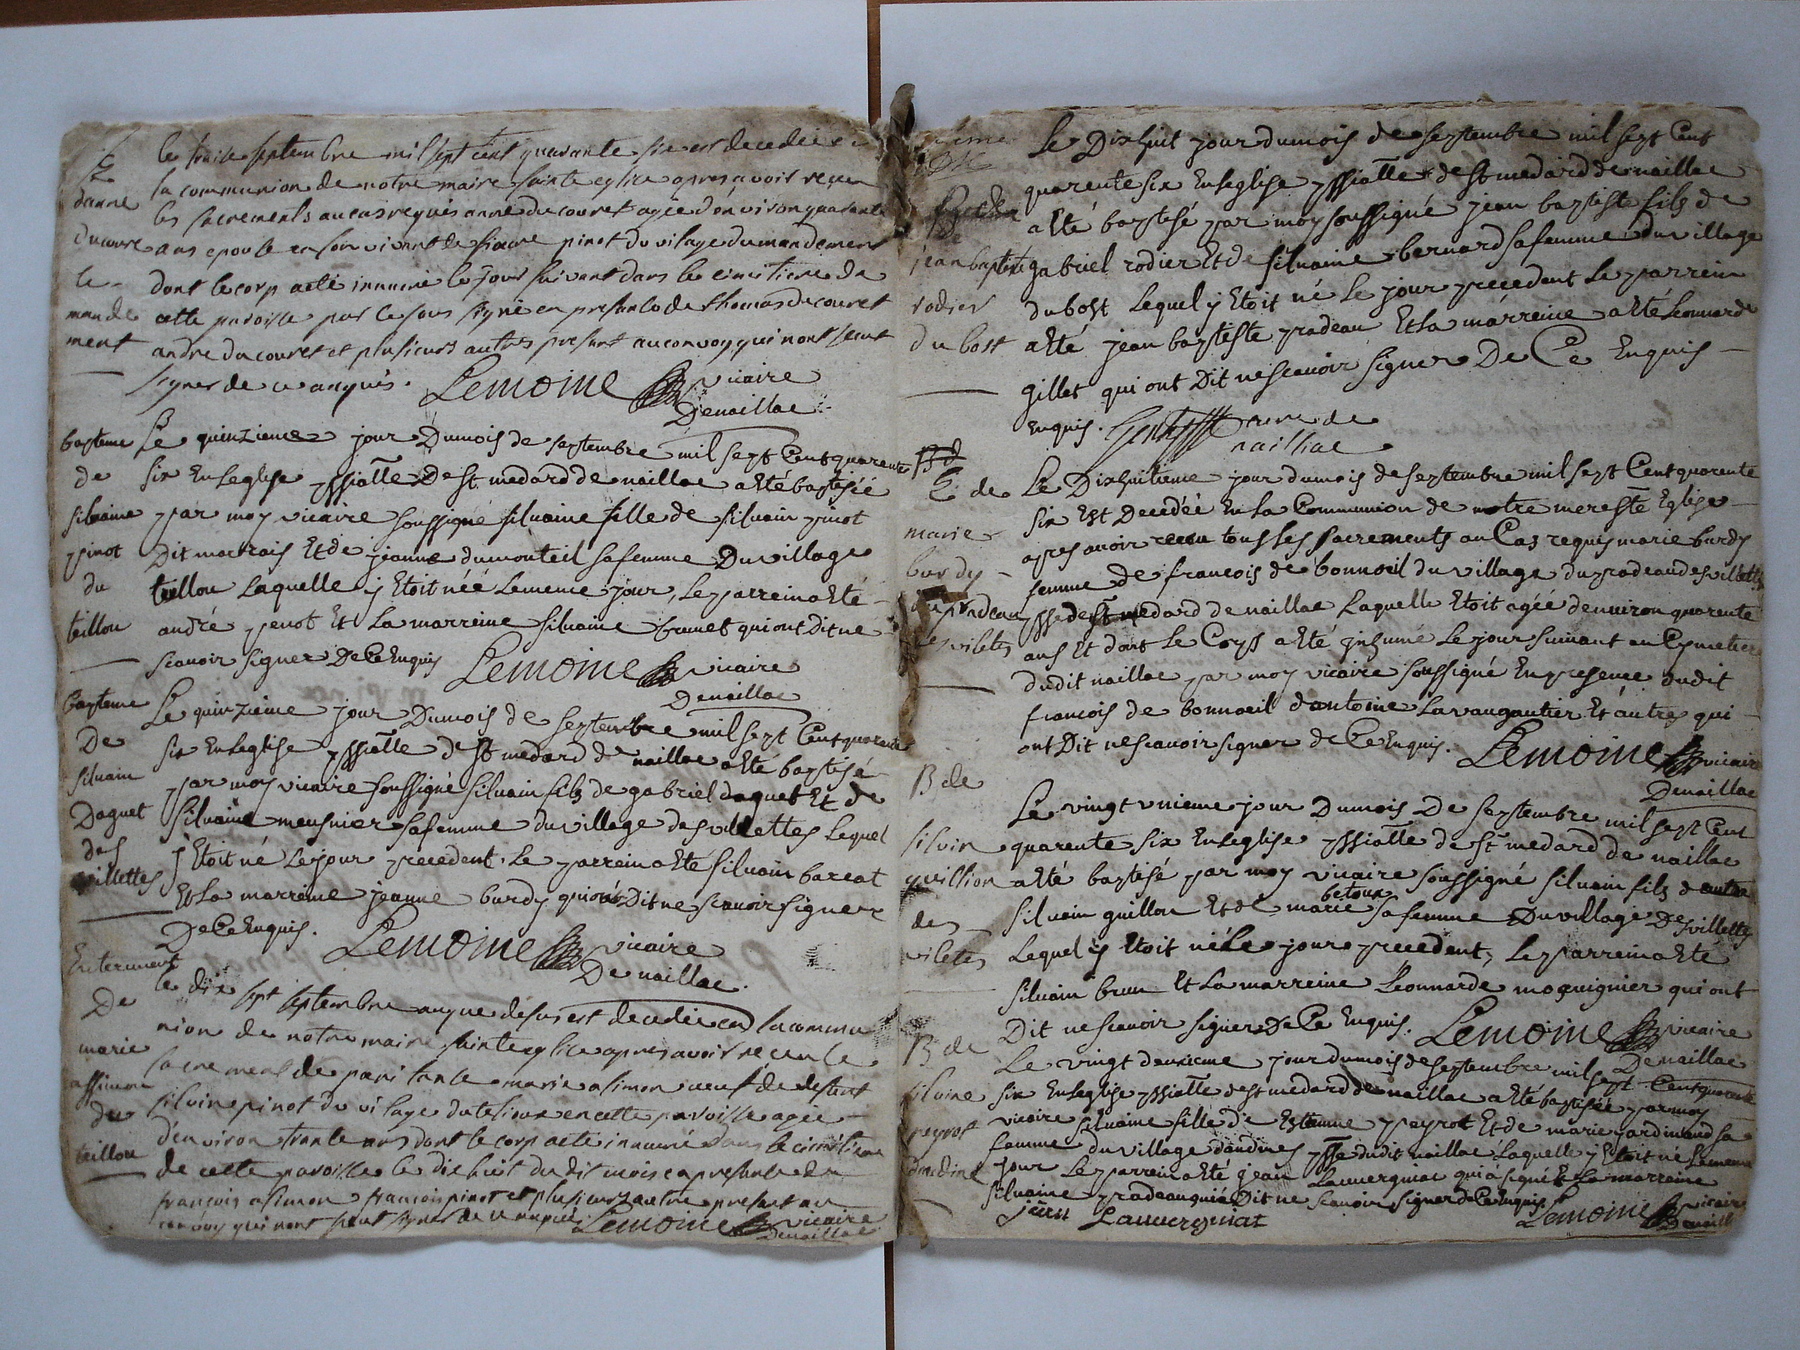 E
danne
ducouret
le
mande
ment
le traise septembre mil sept cent quarante six est decedée
la communion de notre maire sainte eglise apres avoir receu
les sacrements au cas requis anne ducouret agée d'environ quarante
ans epouse en son vivant de pinot du vilage du mandement
dont le corp a eté innumé le jour suivant dans le cimitiere de
cette paroisse par le sous signé en presance de thomas ducouret
andre ducouret et plusieurs autres presant au convoy qui nont sceut
signer de ce anquis. Lemoine vicaire
Denaillac
bapteme
de
silvaine
pinot
du
teillou
Le quinzieme jour Dumois de septembre mil sept Cent quarente
six En Leglise de st medard de naillac a Eté baptisée
par moy vicaire soussigné silvaine fille de silvain pinot
Dit marrais Et de jeanne dumonteil sa femme Du village
teillou Laquelle y Etoit née Le meme jour, Le parrein a Eté
andré penot Et La marreine silvaine brunet qui ont Dit ne
scavoir signer De Ce Enquis Lemoine vicaire
Denaillac
bapteme
De
silvain
Daguet
des
villettes
Le quinzieme jour Dumois de septembre mil sept Cent quarente
six En Leglise de st medard de naillac a Eté baptisé
par moy vicaire soussigné silvain fils de gabriel daguet Et de
silvaine meusnier sa femme du village des villettes Lequel
y Etoit né Le jour precedent, Le parrein a Eté silvain bareat
Et La marreine jeanne burdy qui ont Dit ne scavoir signer
De Ce Enquis. Lemoine vicaire
De naillac.
Enterrement
De
marie
assimon
du
teillou
le dix sept septembre au que desus est decedée en la commu
nion de notre maire sainte eglise apres avoir receu le
sacrement de penitance marie asimon veuf de defunt
silvin pinot du vilage du teilou en cette paroisse agée
d'environ trante ans dont le corp a eté innumé dans le cimitiere
de cette paroisse le dix huit du dit mois en presance de
francois asimon francois pinot et plusieurs autre presant au
convoy qui nont sceut signer de ce anquis. Lemoine vicaire
Denaillac
jean baptiste
rodier
du bost
Le Dix huit jour dumois de septembre mil sept Cent
quarente six En Leglise de st medard de naillac
a Eté baptisé par moy soussigné jean baptiste fils de
gabriel rodier Et de silvaine bernard sa femme du village
du bost Lequel y Etoit né Le jour precedent Le parrein
a Eté jean baptiste pradeau Et La marreine a Eté Leonarde
gillet qui ont Dit ne scavoir signer De Ce Enquis
Enquis. curé de
nailliac
E de
marie
burdy
du pradeau
es viletes
Le Dix huitieme jour dumois de septembre mil sept Cent quarente
six Est Decedée En La Communion de notre mere ste Eglise
apres avoir receu tous les sacrements au Cas requis marie burdy
femme de francois de bonnoeil du village du pradeau des villettes
psse de st medard de naillac Laquelle Etoit agée denviron quarente
ans Et dont Le Corps a Eté inhumé Le jour suivant au Cymetiere
dudit naillac par moy vicaire soussigné En presence dudit
francois de bonnoeil dantoine Lavaugautier Et autres qui
ont Dit ne scavoir signer de Ce Enquis. Lemoine vicaire
Denaillac
B de
silvin
quillion
des
viletes
Le vingt unieme jour Dumois De septembre mil sept Cent
quarente six En Leglise de st medard de naillac
a Eté baptisé par moy vicaire soussigné silvain fils
betoux
silvain guillon Et de marie sa femme Du village Des villettes
Lequel y Etoit né Le jour precedent, Le parrein a Eté
silvain brun Et La marreine Leonnarde moquignier qui ont
Dit ne scavoir signer De Ce Enquis. Lemoine vicaire
Denaillac
B de
silvine
peyrot
Le vingt deuxieme jour dumois de septembre mil sept Cent quarente
six En Leglise de st medard de naillac a Eté baptisée par moy
vicaire silvaine fille de Estienne peyrot Et de marie jardinaud sa
femme du village dandines psse dudit naillac Laquelle y Etoit né Le meme
jour Le parrein a Eté jean Lauvergniat qui a signé Et La marreine
silvaine pradeau qui a Dit ne scavoir signer de Ce Enquis Lemoine vicaire
Denaill
jean Lauvergniat